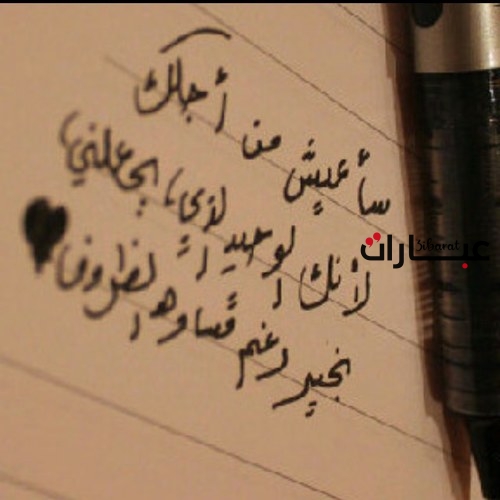 سأعيش من أجلك
لأنك الوحيد الذي يجعلني
بخير رغم قساوه الظروف
عبارات
3ibarat